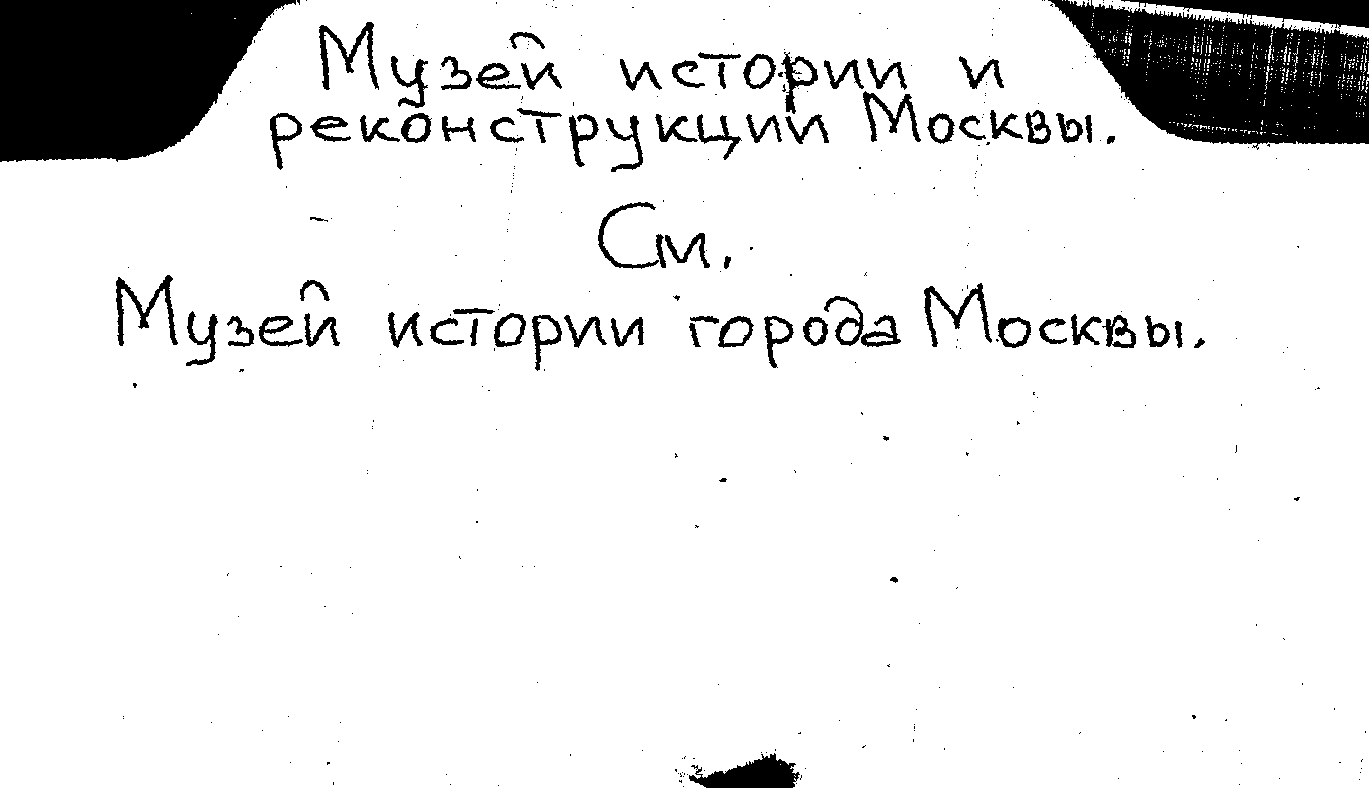 Музей истории и
реконструкции Москвы.
См.
Музей истории города Москвы.